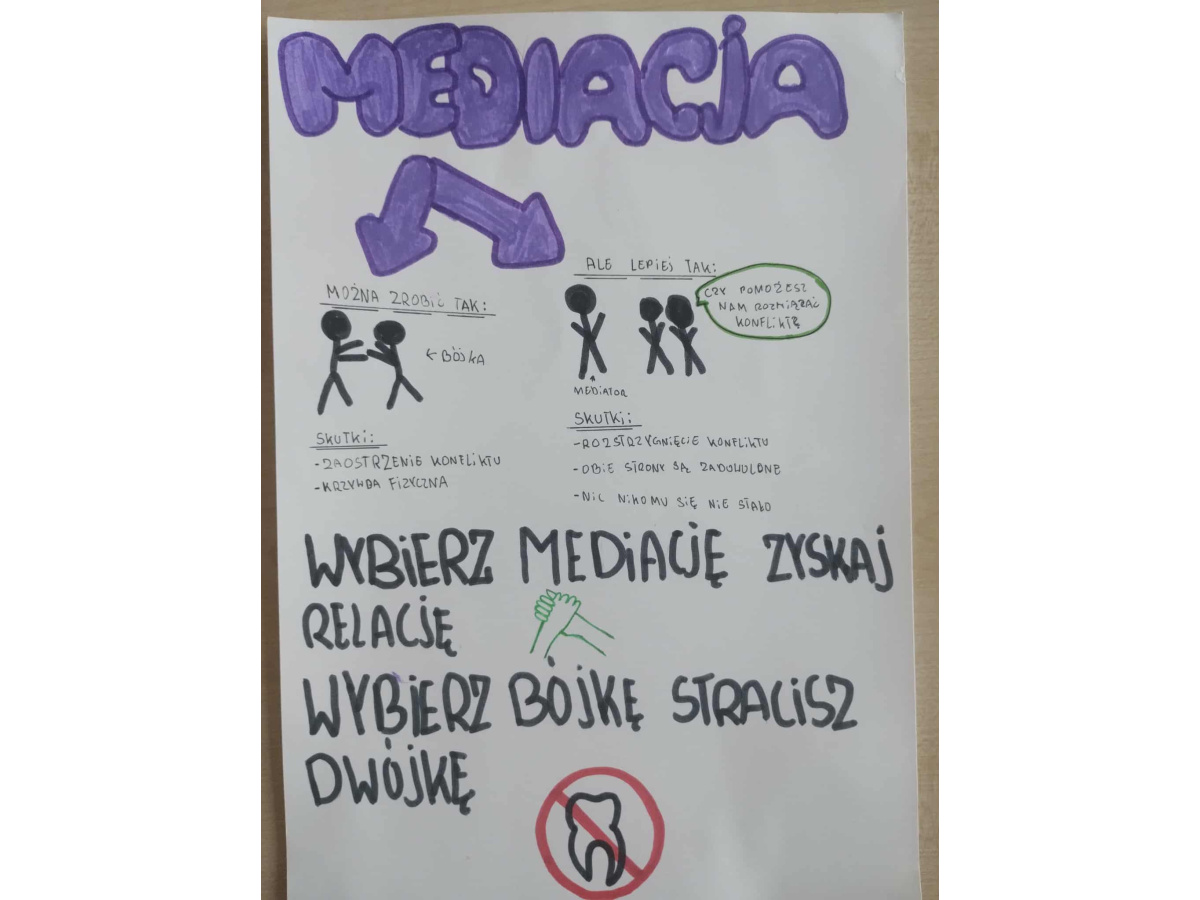 MEDIACJA
MOŻNA ZROBIĆ TAK:
← BÓJKA
SKUTKI:
- ZAOSTRZENIE KONFLIKTU
- KRZYWDA FIZYCZNA
ALE LEPIEJ TAK:
CZY POMOŻESZ
NAM ROZWIĄZAĆ
KONFLIKT?
MEDIATOR
SKUTKI:
- ROZSTRZYGNIĘCIE KONFLIKTU
- OBIE STRONY SĄ ZADOWOLONE
- NIC NIKOMU SIĘ NIE STAŁO
WYBIERZ MEDIACJĘ ZYSKAJ
RELACJĘ
WYBIERZ BÓJKĘ STRACISZ
DWÓJKĘ